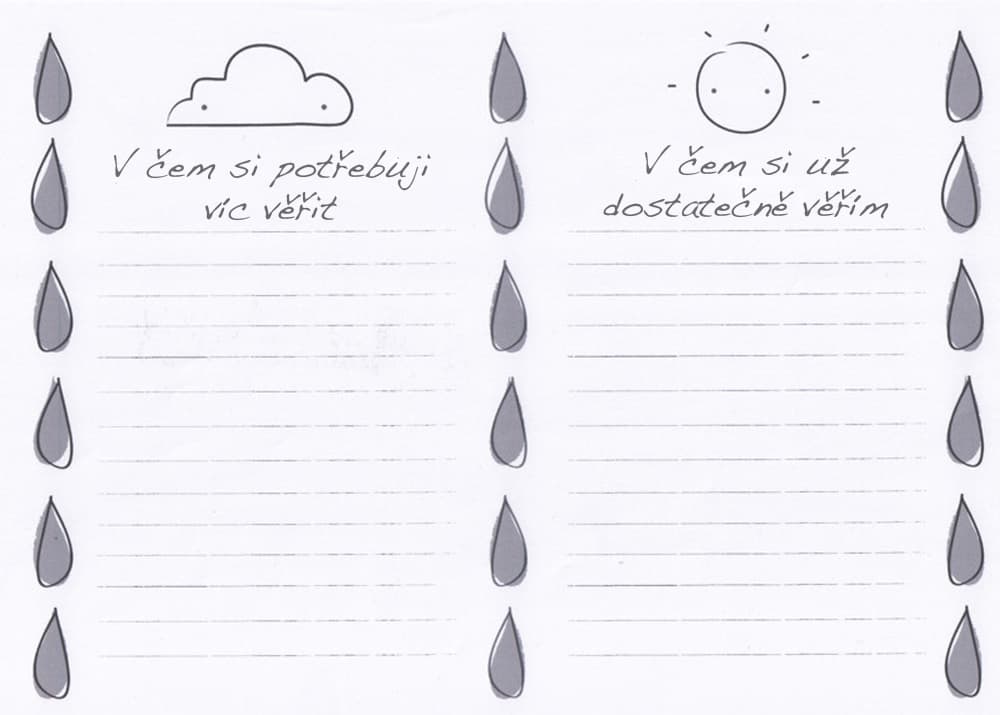 V čem si potřebuji
víc věřit
V čem si už
dostatečně věřím